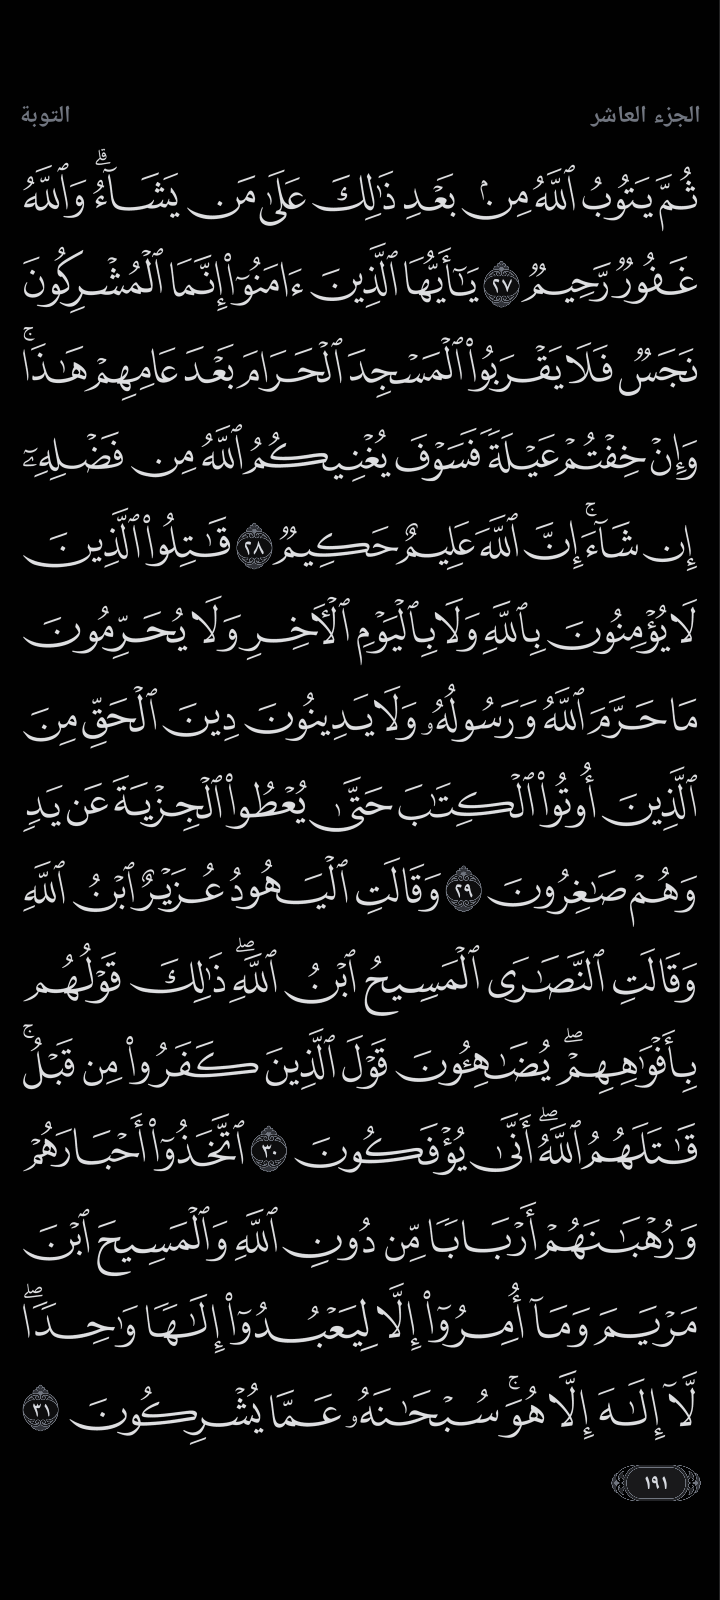 الجزء العاشر
التوبة
ثُمَّ يَتُوبُ ٱللَّهُ مِنۢ بَعۡدِ ذَٰلِكَ عَلَىٰ مَن يَشَآءُۗ وَٱللَّهُ
غَفُورٞ رَّحِيمٞ ٢٧ يَٰٓأَيُّهَا ٱلَّذِينَ ءَامَنُوٓاْ إِنَّمَا ٱلۡمُشۡرِكُونَ
نَجَسٞ فَلَا يَقۡرَبُواْ ٱلۡمَسۡجِدَ ٱلۡحَرَامَ بَعۡدَ عَامِهِمۡ هَٰذَاۚ
وَإِنۡ خِفۡتُمۡ عَيۡلَةٗ فَسَوۡفَ يُغۡنِيكُمُ ٱللَّهُ مِن فَضۡلِهِۦٓ
إِن شَآءَۚ إِنَّ ٱللَّهَ عَلِيمٌ حَكِيمٞ ٢٨ قَٰتِلُواْ ٱلَّذِينَ
لَا يُؤۡمِنُونَ بِٱللَّهِ وَلَا بِٱلۡيَوۡمِ ٱلۡأٓخِرِ وَلَا يُحَرِّمُونَ
مَا حَرَّمَ ٱللَّهُ وَرَسُولُهُۥ وَلَا يَدِينُونَ دِينَ ٱلۡحَقِّ مِنَ
ٱلَّذِينَ أُوتُواْ ٱلۡكِتَٰبَ حَتَّىٰ يُعۡطُواْ ٱلۡجِزۡيَةَ عَن يَدٖ
وَهُمۡ صَٰغِرُونَ ٢٩ وَقَالَتِ ٱلۡيَهُودُ عُزَيۡرٌ ٱبۡنُ ٱللَّهِ
وَقَالَتِ ٱلنَّصَٰرَى ٱلۡمَسِيحُ ٱبۡنُ ٱللَّهِۖ ذَٰلِكَ قَوۡلُهُم
بِأَفۡوَٰهِهِمۡۖ يُضَٰهِـُٔونَ قَوۡلَ ٱلَّذِينَ كَفَرُواْ مِن قَبۡلُۚ
قَٰتَلَهُمُ ٱللَّهُۖ أَنَّىٰ يُؤۡفَكُونَ ٣٠ ٱتَّخَذُوٓاْ أَحۡبَارَهُمۡ
وَرُهۡبَٰنَهُمۡ أَرۡبَابٗا مِّن دُونِ ٱللَّهِ وَٱلۡمَسِيحَ ٱبۡنَ
مَرۡيَمَ وَمَآ أُمِرُوٓاْ إِلَّا لِيَعۡبُدُوٓاْ إِلَٰهٗا وَٰحِدٗاۖ
لَّآ إِلَٰهَ إِلَّا هُوَۚ سُبۡحَٰنَهُۥ عَمَّا يُشۡرِكُونَ ٣١
١٩١